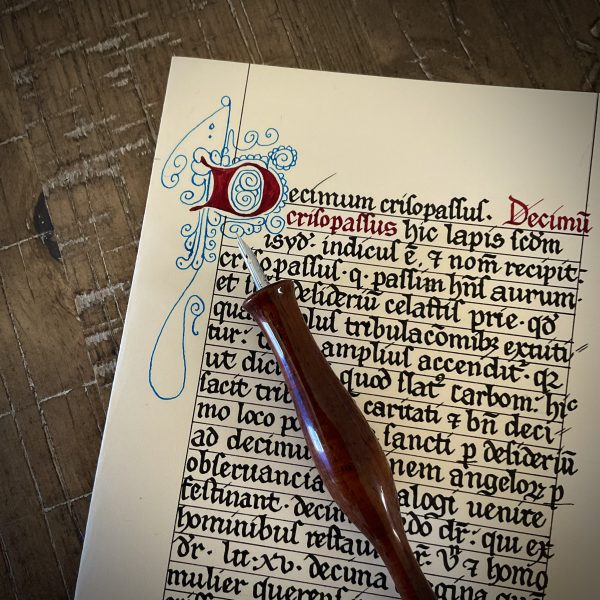 Decimum crisopassus. Decimū
crisopassus hic lapis scdm
isyd'. indicus ē. ⁊ nom̄ recipit.
crisopassus. q. passim hn̄s aurum.
et desideriū celastis prie. qd̄
solus tribulacōmibꝫ exuiti
tur. amplius accendit᷑. qꝛ
ut dici quod slat᷑ carbom. hic
facit trib caritati ⁊ bn̄ deci
mo loco sancti p desideriū
ad decimu nem angeloꝝ p
obseruancia alogi uenire
festinant. decim dr̄: qui ex
hominibus restau
dr. lu: xv. decima gina
mulier querens